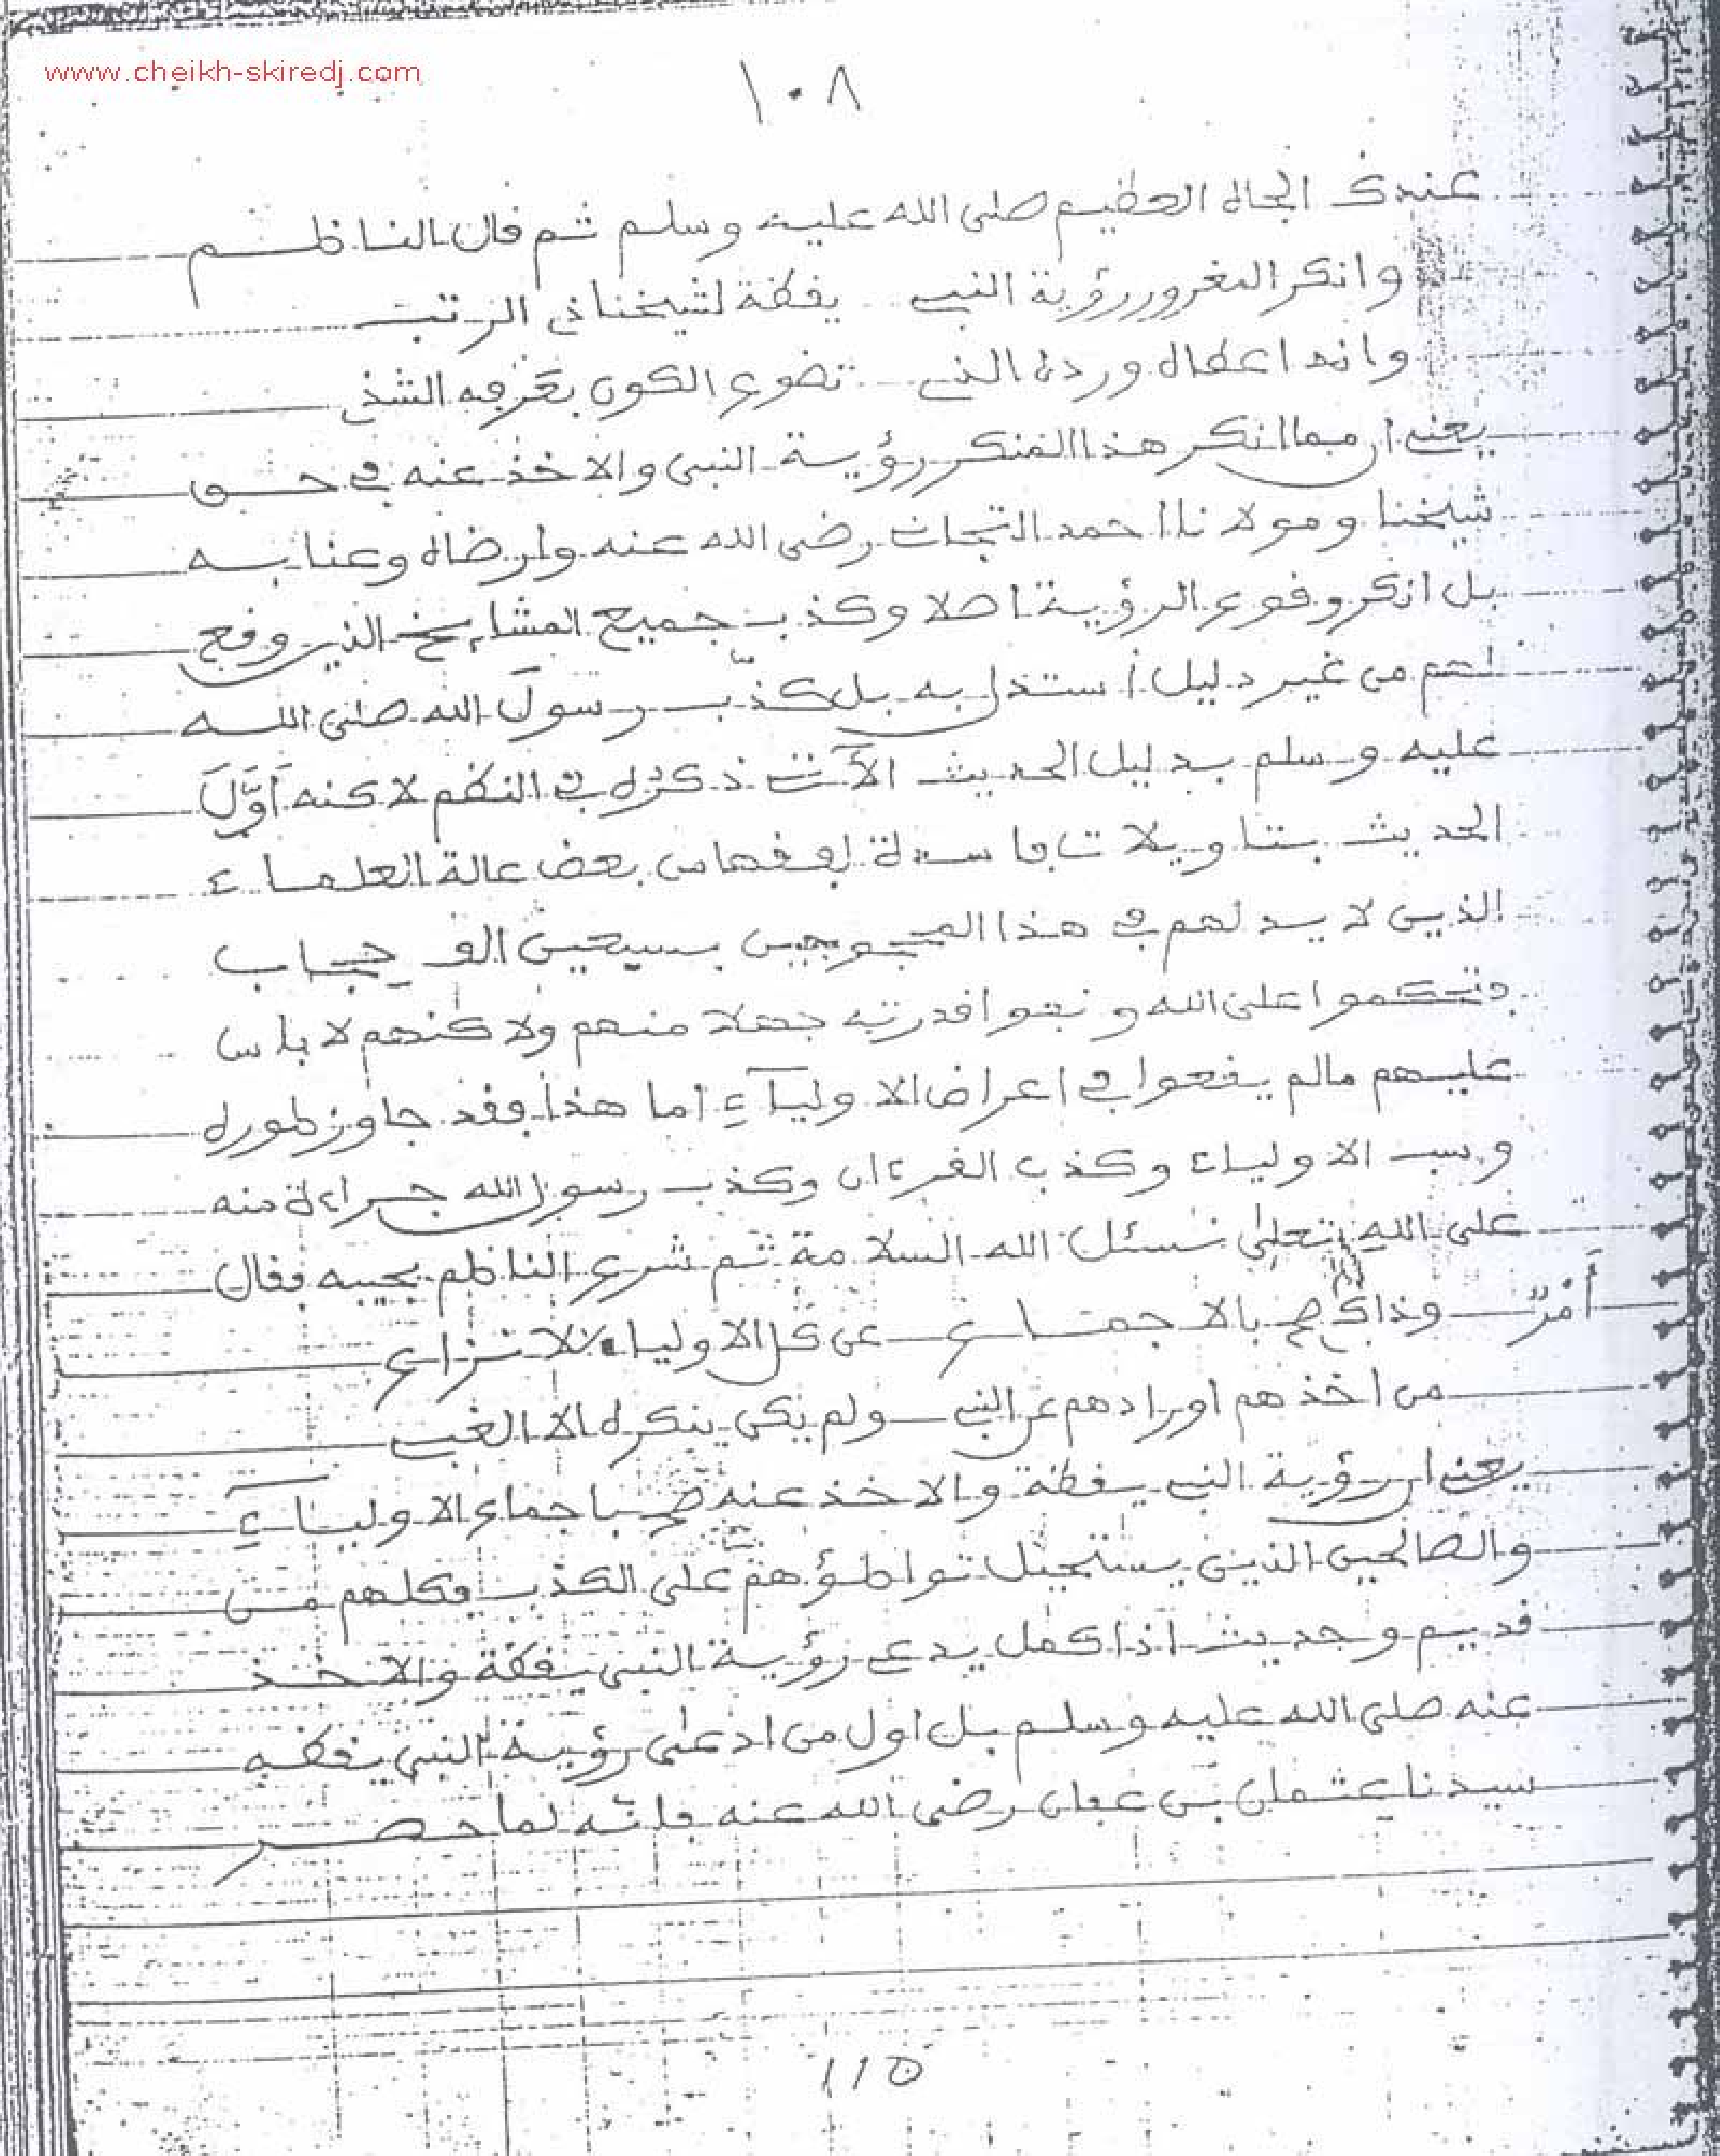 www.cheikh-skiredj.com
١٠٨
عندك الجاه العظيم صلى الله عليه وسلم ثم قال الناظم
وانكر المغرور رؤية النبي يقظة لشيخنا ذي الرتب
وانه اعطاه ورده الذي تضوع الكون بعرفه الشذي
يعني ان مما انكر هذا المنكر رؤية النبي والاخذ عنه في حق
شيخنا ومولانا احمد التجاني رضى الله عنه وارضاه وعنا به
بل انكر وقوع الرؤية اصلا وكذب جميع المشايخ الذين وقع
لهم من غير دليل استدل به بل كذّب رسول الله صلى الله
عليه وسلم بدليل الحديث الآتي ذكره في النظم لاكنه اوّل
الحديث بتاويلات فاسدة من بعض عالة العلماء
الذين لا يد لهم في هذا المحجوبين بسبعين الف حجاب
وتحكموا على الله ونفوا قدرته جهلا منهم ولاكنهم لا باس
عليهم مالم يقعوا في اعراض الاولياء اما هذا فقد جاوز طوره
وسب الاولياء وكذب القرءان وكذب رسول الله جراءة منه
على الله تعلى نسئل الله السلامة ثم شرع الناظم يجيبه فقال
وذاك صح بالاجماع عن كل الاولياء بلا نزاع
من اخذهم اورادهم عن النبي ولم يكن ينكره الا الغبي
يعني ان رؤية النبي يقظة والاخذ عنه صح باجماع الاولياء
والصالحين الذين يستحيل تواطؤهم على الكذب فكلهم من
قديم وحديث اذا كمل يدعي رؤية النبي يقظة والاخذ
عنه صلى الله عليه وسلم بل اول من ادعى رؤية النبي يقظه
سيدنا عثمان بن عفان رضى الله عنه فانه لما حصر
115